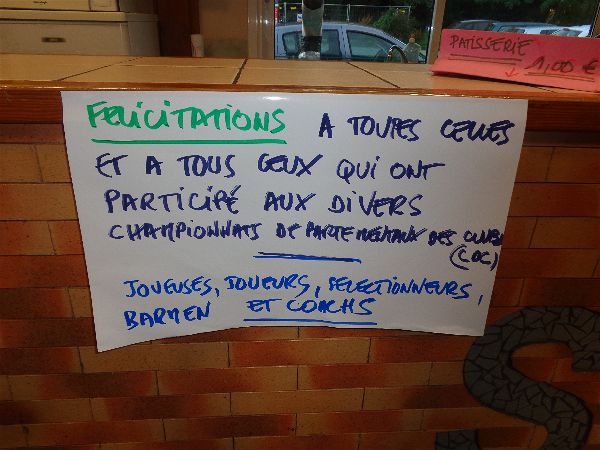 PATISSERIE
1,00 €
FELICITATIONS A TOUTES CELLES
ET A TOUS CEUX QUI ONT
PARTICIPÉ AUX DIVERS
CHAMPIONNATS DEPARTEMENTAUX DES CLUBS
(CDC)
JOUEUSES, JOUEURS, SELECTIONNEURS,
BARMEN ET COACHS
S